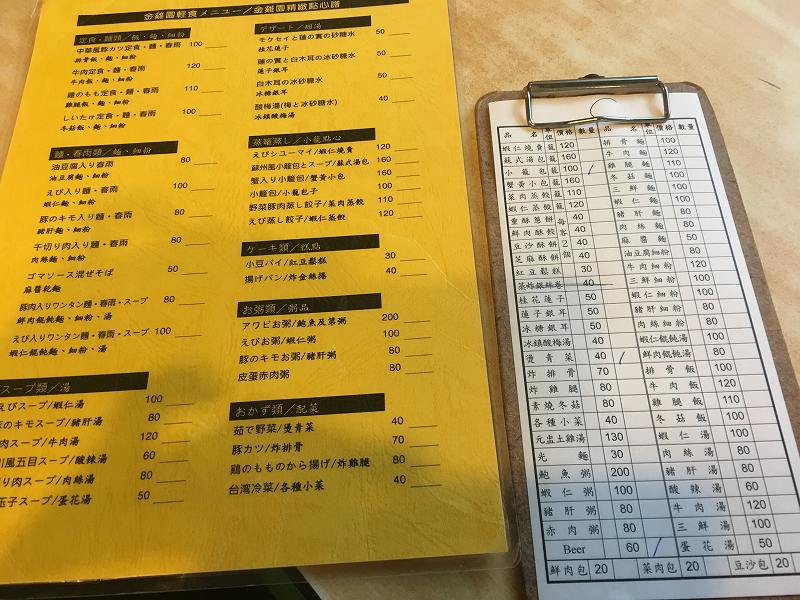 金雞園軽食メニュー／金雞園精緻點心譜
定食・麺類／飯、麵、細粉
中華風豚カツ定食・麺・春雨 100
排骨飯、麵、細粉
牛肉定食・麺・春雨 120
牛肉飯、麵、細粉
鶏のもも定食・麺・春雨 110
雞腿飯、麵、細粉
しいたけ定食・麺・春雨 100
冬菇飯、麵、細粉
麺・春雨類／麵、細粉
油豆腐入り春雨 80
油豆腐麵、細粉
えび入り麺・春雨 100
蝦仁麵、細粉
豚のキモ入り麺・春雨 80
豬肝麵、細粉
千切り肉入り麺・春雨 80
肉絲麵、細粉
ゴマソース混ぜそば 50
麻醬乾麵
豚肉入りワンタン麺・春雨・スープ 80
鮮肉餛飩麵、細粉、湯
えび入りワンタン麺・春雨・スープ 100
蝦仁餛飩麵、細粉、湯
スープ類／湯
えびスープ/蝦仁湯 100
のキモスープ/豬肝湯 80
肉スープ/牛肉湯 120
川風五目スープ/酸辣湯 60
り肉スープ/肉絲湯 80
玉子スープ/蛋花湯 50
デザート／甜湯
モクセイと蓮の實の氷砂糖水 50
桂花蓮子
蓮の實と白木耳の氷砂糖水 50
蓮子銀耳
白木耳の氷砂糖水 50
冰糖銀耳
酸梅湯(梅と氷砂糖水) 40
冰鎮酸梅湯
蒸籠蒸し／小籠點心
えびシューマイ/蝦仁燒賣 120
蘇州風小籠包とスープ/蘇式湯包 160
蟹入り小籠包/蟹黃小包 160
小籠包/小籠包子 100
野菜豚肉蒸し餃子/菜肉蒸餃 110
えび蒸し餃子/蝦仁蒸餃 120
ケーキ類／糕點
小豆パイ/紅豆鬆糕 30
揚げパン/炸金絲捲 40
お粥類／粥品
アワビお粥/鮑魚及第粥 200
えびお粥/蝦仁粥 100
豚のキモお粥/豬肝粥 80
皮蛋赤肉粥 80
おかず類／配菜
茹で野菜/燙青菜 40
豚カツ/炸排骨 70
鶏のもものから揚げ/炸雞腿 80
台湾冷菜/各種小菜 40
品名 單位 價格 數量 品名 單位 價格 數量
蝦仁燒賣 籠 120 排骨麵 100
蘇式湯包 籠 160 牛肉麵 120
小籠包 籠 100 雞腿麵 110
蟹黃小包 籠 160 冬菇麵 100
菜肉蒸餃 籠 110 三鮮麵 100
蝦仁蒸餃 籠 120 蝦仁麵 100
重酥蔥餅 40 豬肝麵 80
鮮肉酥餅 40 肉絲麵 80
豆沙酥餅 40 麻醬麵 50
芝麻酥餅 40 油豆腐細粉 80
每客2個
紅豆鬆糕 30 牛肉細粉 120
蒸炸銀絲卷 40 三鮮細粉 100
桂花蓮子 50 蝦仁細粉 100
蓮子銀耳 50 豬肝細粉 80
冰糖銀耳 50 肉絲細粉 80
冰鎮酸梅湯 40 蝦仁餛飩湯 100
燙青菜 40 鮮肉餛飩湯 80
炸排骨 70 排骨飯 100
炸雞腿 80 牛肉飯 120
素燒冬菇 80 雞腿飯 110
各種小菜 40 冬菇飯 100
元盅土雞湯 130 蝦仁湯 100
光麵 30 肉絲湯 80
鮑魚粥 200 豬肝湯 80
蝦仁粥 100 酸辣湯 60
豬肝粥 80 牛肉湯 120
赤肉粥 80 三鮮湯 100
Beer 60 蛋花湯 50
鮮肉包 20 菜肉包 20 豆沙包 20